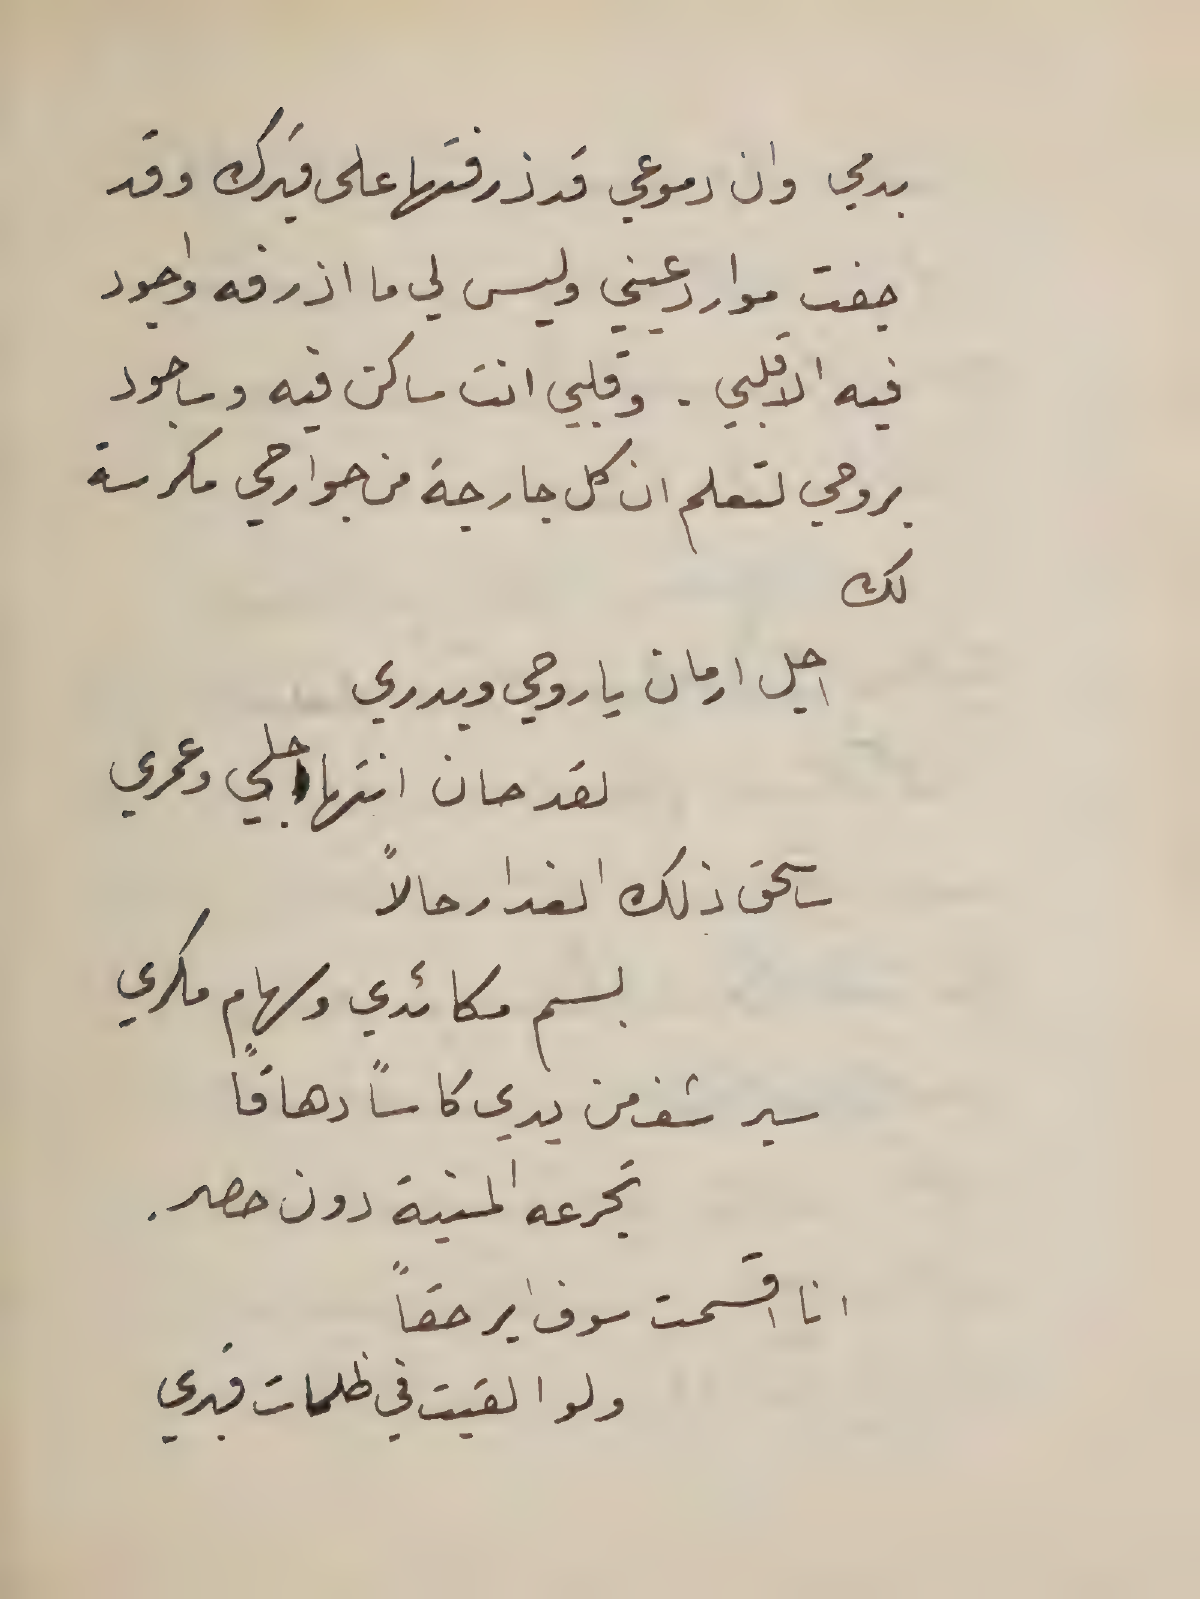 بدمي وان دموعي قد ذرفتها على قبرك وقد
جفت موارد عيني وليس لي ما اذرفه واجود
فيه الا قلبي . وقلبي انت ساكن فيه وساجود
بروحي لتعلم ان كل جارحة من جوارحي مكرسة
لك
اجل ارمان يا روحي وبدري
لقد حان انتها اجلي وعمري
ساسحق ذلك الغدار حالاً
بسم مكائدي وسهام مكري
سيرشف من يدي كاساً دهاقاً
تجرعه المنية دون حصر .
انا اقسمت سوف ابر حقاً
ولو القيت في ظلمات قبري